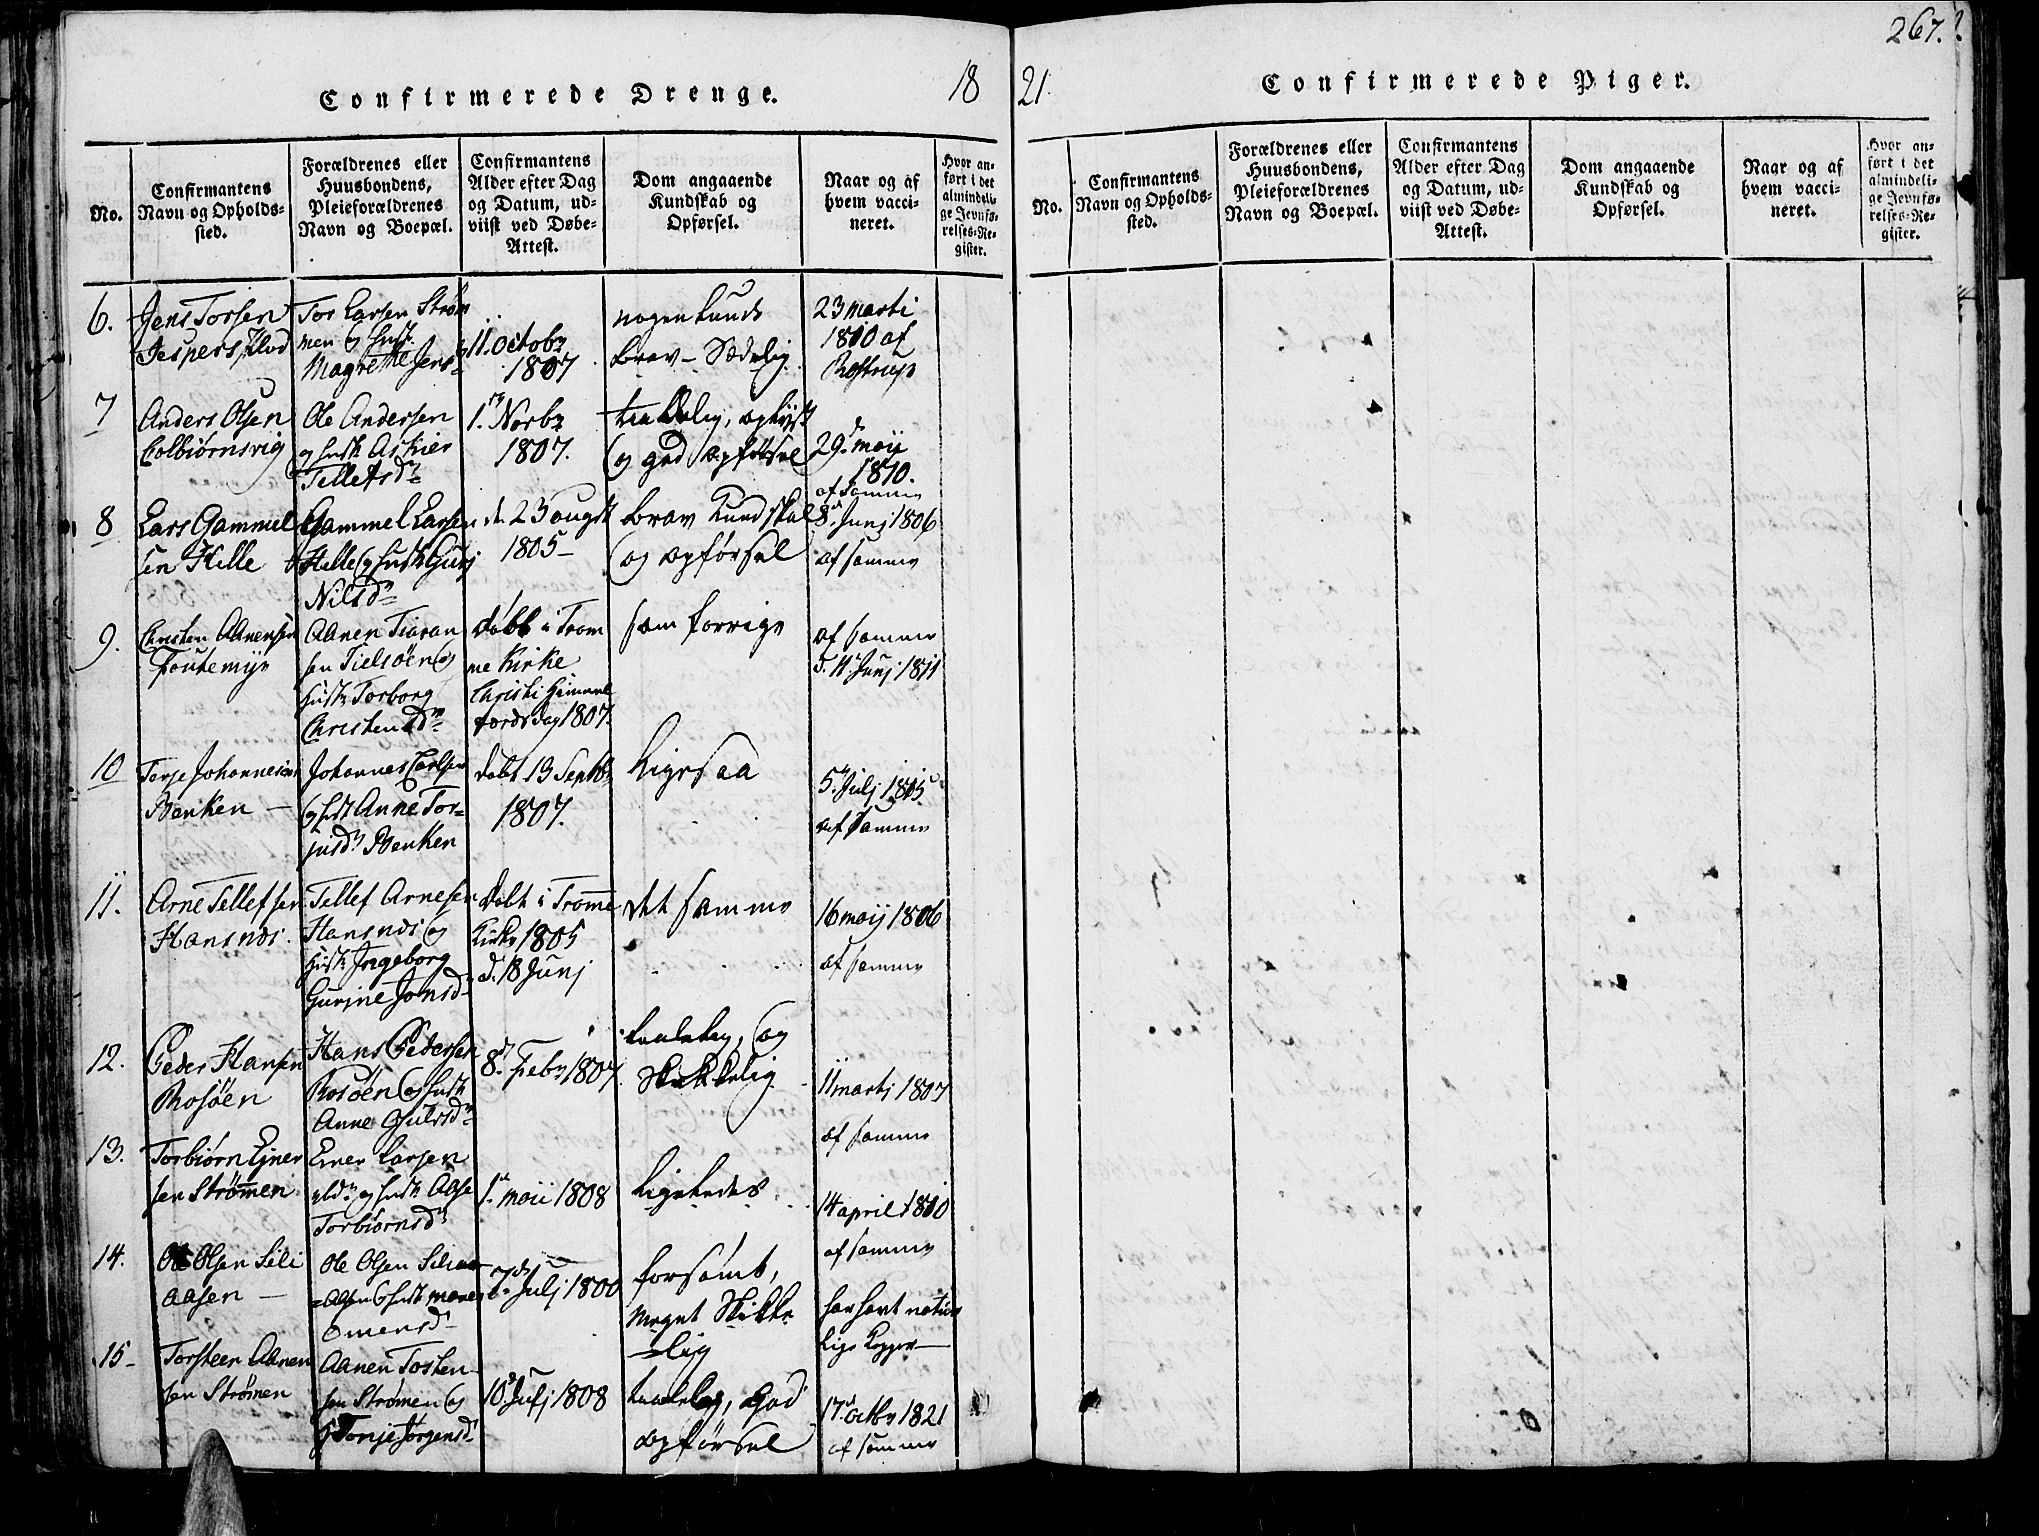 267.
Confirmerede Drenge.
18
No.
Confirmantens
Navn og Opholds-
sted.
Forældrenes eller
Huusbondens,
Pleieforældrenes
Navn og Boepæl.
Confirmantens
Alder efter Dag
og Datum, ud-
viist ved Døbe-
Attest.
Dom angaaende
Kundskab og
Opførsel.
Naar og af
hvem vacci-
neret.
Hvor an-
ført i det
almindeli-
ge Jevnfø-
relses-Re-
gister.
6.
Jens Torsen
Jespers
Tor Larsen Strøm
men og Hust.
Magrethe Jens
11. Octobr
1807
nogenlunde
brav - Sædelig
23 Marti
1810 af
Rostrup
7
Anders Olsen
Colbiørnsvig
Ole Andersen
og Hust. Askier
Tellefsdr
1. Novbr
1807.
taalelig, oplyst
og god opførsel
29. Maii
1810.
af samme
8
Lars Gammel
sen Helle
Gammel Larsen
Helle og Hustr Gurj
Nilsdr
d. 23 augst
1805 -
brav Kundskab
og opførsel
8. Junj 1806
af samme
9.
Christen Aanensen
Foutemyr
Aanen Tiaran
sen Tielsøen og
Hustr Torborg
Christensdr
døbt i Trom
me Kirke
Christi Himmel
færdsdag 1807.
som forrige
af samme
d. 11 Junj 1811
10
Terje Johannesen
Benken -
Johannes Carlsen
og Hust Anne Tor=
jusdr Benken
døbt 13 Septbr
1807.
Ligesaa
5. Julj 1815
af samme
11.
Arne Tellefsen
Hansnæs.
Tellef Arnesen
Hansnæs og
Hustr Ingeborg
Gurine Jonsdr
døbt i Tromme
Kirke 1805
d. 18 Junj
det samme
16 maij 1806
af samme
12.
Peder Hansen
Rosøen
Hans Pedersen
Rosøen og Hustr
Anne Gjulsdr
8. Febr 1807.
taalelig, og
Skikkelig
11 martj 1807
af samme
13.
Torbiørn Ejner
sen Strømmen
Einer Larsen
og Hustr Aase
Torbiørnsdr
1. maii 1808
Ligeledes
14 april 1810
af samme
14.
Ole Olsen Sili
aasen -
Ole Olsen Sili
=aasen og Hustr Maren
Omensdr
7. Julj 1800
forsømt,
meget Skikke
=lig
har havt natur
lige Kopper -
15 -
Torsteen Aanen
sen Strømen
Aanen Tosten
sen Strømen og
Tonje Jørgensdr
10. Julj 1808
taalelig, God
opførsel
17. octbr 1821
af samme
21.
Confirmerede Piger.
No.
Confirmantens
Navn og Opholds-
sted.
Forældrenes eller
Huusbondens,
Pleieforældrenes
Navn og Boepæl.
Confirmantens
Alder efter Dag
og Datum, ud-
viist ved Døbe-
Attest.
Dom angaaende
Kundskab og
Opførsel.
Naar og af
hvem vacci-
neret.
Hvor an-
ført i det
almindeli-
ge Jevnfø-
relses-Re-
gister.